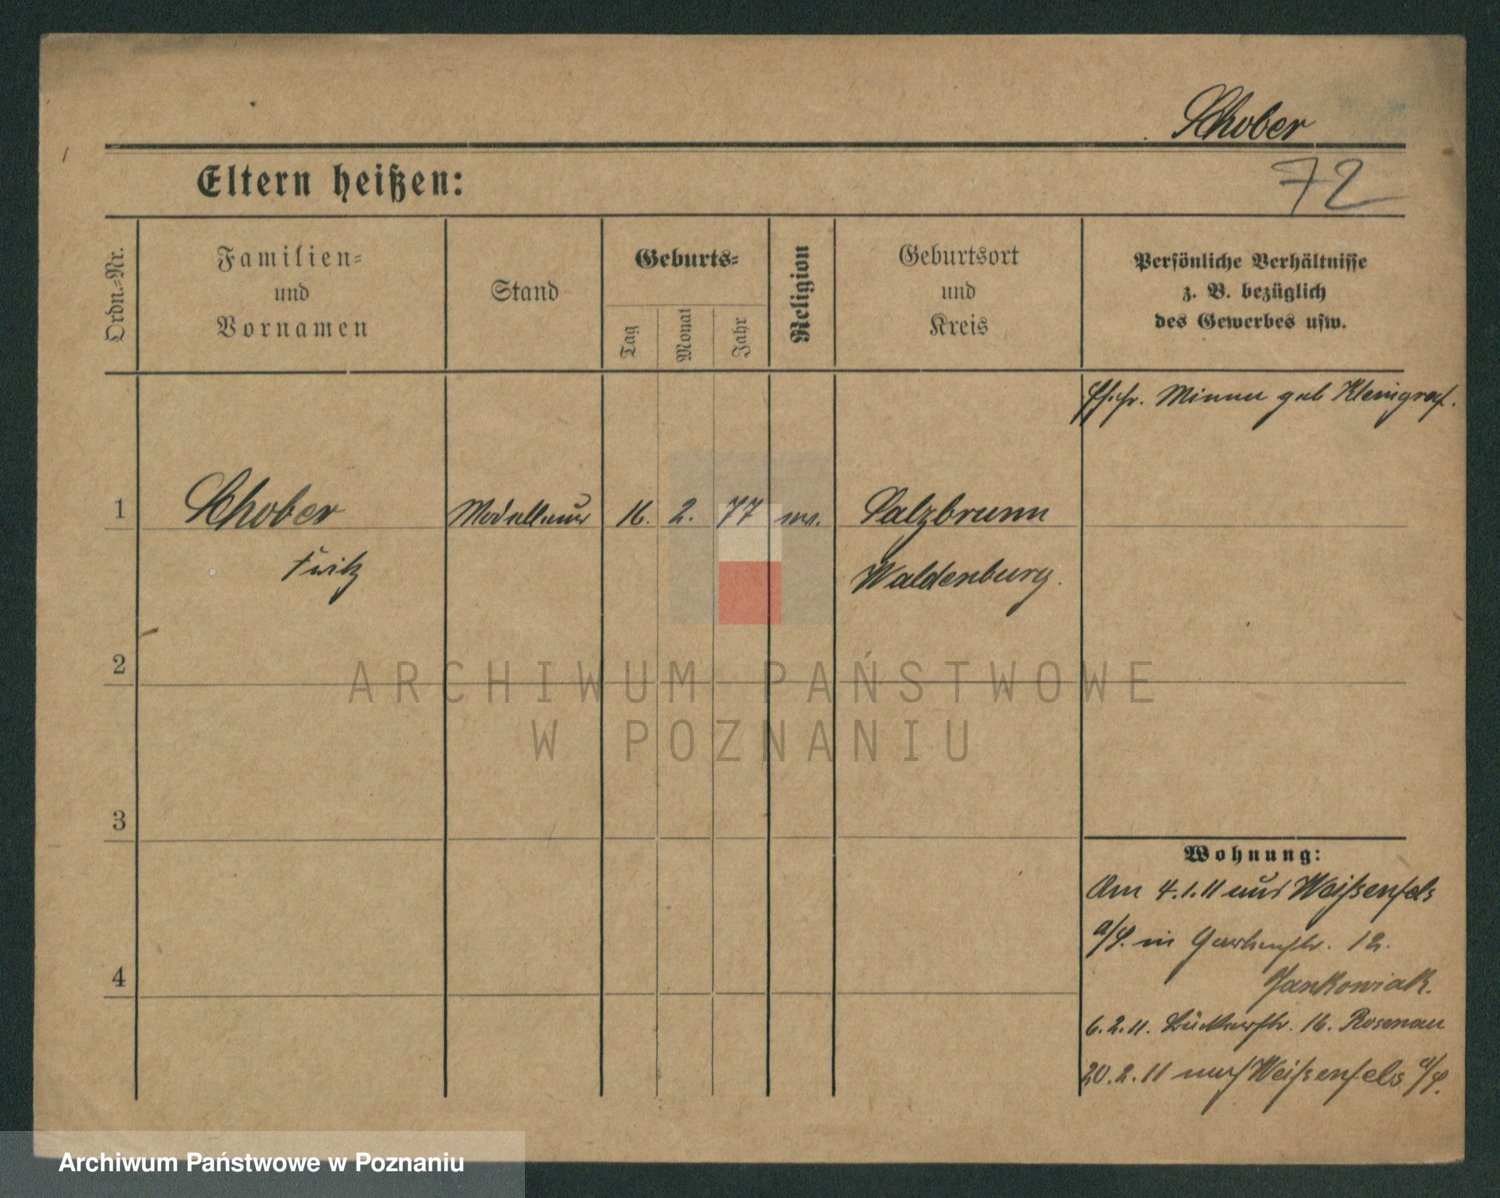 Schober
72
Eltern heißen:
Ordn.-Nr.
Familien-
und
Vornamen
Stand
Geburts-
Tag
Monat
Jahr
Religion
Geburtsort
und
Kreis
Persönliche Verhältnisse
z. B. bezüglich
des Gewerbes usw.
Minna geb Kleingraf.
1
Schober
Modelleur
16.
2.
77
Salzbrunn
Fritz
Waldenburg.
2
ARCHIWUM PAŃSTWOWE
W POZNANIU
3
Wohnung:
Am 4.1.11 aus Weißenfels
a/S. in Gartenstr. 12.
4
Jankowiak.
6.2.11. Bückerstr. 16. Rosenau
20.2.11 nach Weißenfels a/S.
Archiwum Państwowe w Poznaniu